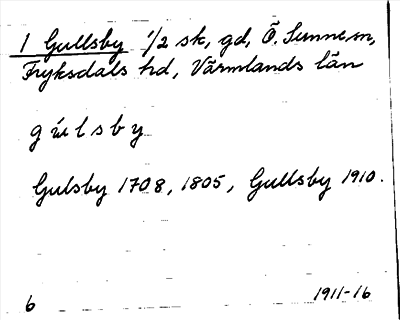 1 Gullsby 1/2 sk, gd, Ö. Sunne sn,
Fryksdals hd, Värmlands län
gúlsby
Gulsby 1708, 1805, Gullsby 1910.
6 1911-16